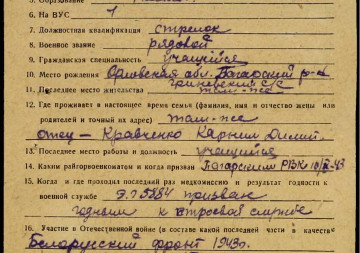 6. На ВУС 1
7. Должностная квалификация стрелок
8. Военное звание рядовой
9. Гражданская специальность учащийся
10. Место рождения Орловская обл. Погарский р-н
11. Последнее место жительства там-же
12. Где проживает в настоящее время семья (фамилия, имя и отчество жены или
родителей и точный их адрес) там-же
отец – Кравченко Карним Димит.
13. Последнее место работы и должность учащийся
14. Каким райгорвоенкоматом и когда призван Погарским РВК
15. Когда и где проходил последний раз медкомиссию и результат годности к
военной службе признан
годным к строевой службе
16. Участие в Отечественной войне (в составе какой последней части и в качестве
Белорусский фронт 1943г.